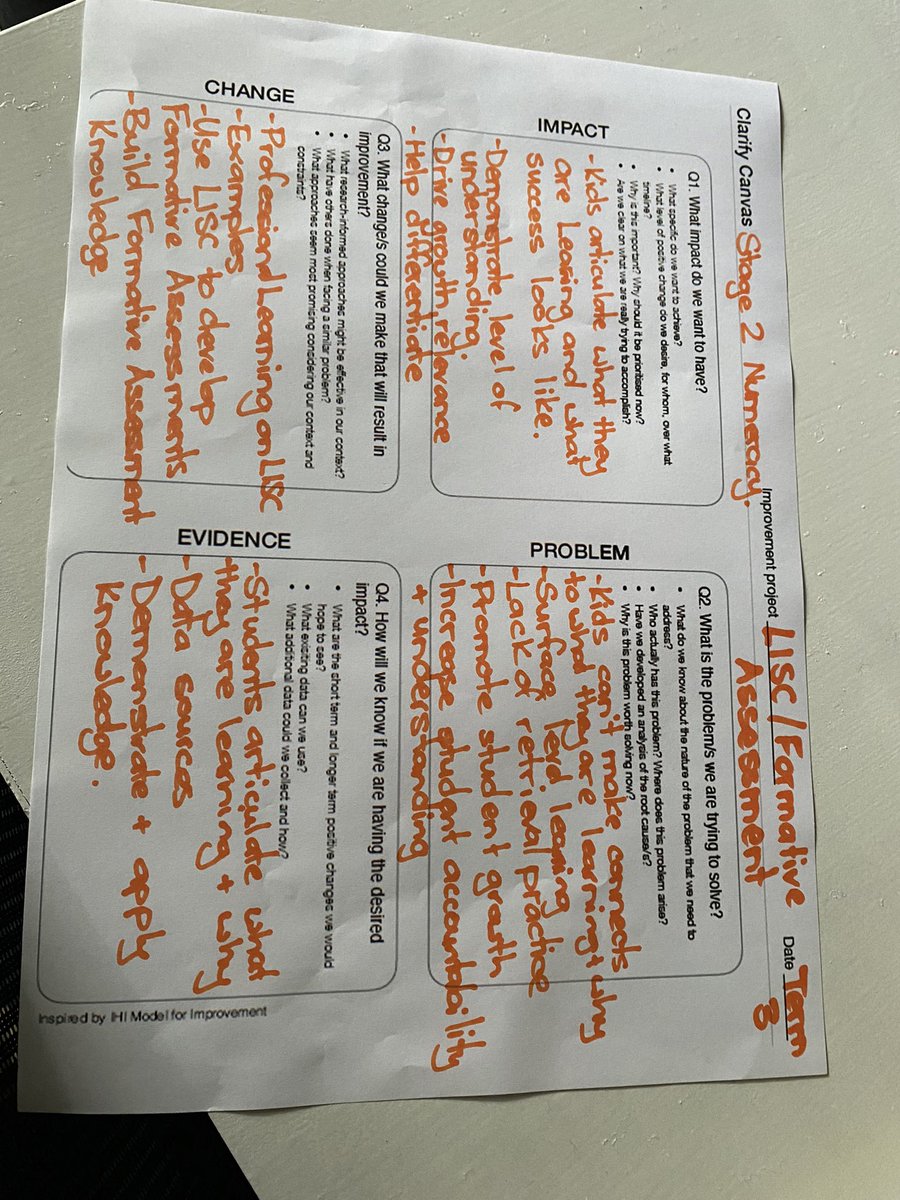 Clarify Canvas Stage 2 Numeracy.
Improvement project LISC/Formative
Assessment
Date Term
3
IMPACT
Q1. What impact do we want to have?
• What specific do we want to achieve?
• What level of positive change do we desire, for whom, over what
timeline?
• Why is this important? Why should it be prioritised now?
• Are we clear on what we are really trying to accomplish?
-Kids articulate what they
are learning and what
success looks like.
-Demonstrate level of
understanding.
-Drive growth, relevance
-Help differentiate
PROBLEM
Q2. What is the problem/s we are trying to solve?
• What do we know about the nature of the problem that we need to
address?
• Who actually has this problem? Where does this problem arise?
• Have we developed an analysis of the root cause/s?
• Why is this problem worth solving now?
-Kids can't make connects
to what they are learning + why
-Surface level learning
-Lack of retrieval practice
-Promote student growth
-Increase student accountability
+ understanding
CHANGE
Q3. What change/s could we make that will result in
improvement?
• What research-informed approaches might be effective in our context?
• What have others done when facing a similar problem?
• What approaches seem most promising considering our context and
constraints?
-Professional Learning on LISC
-Examples
-Use LISC to develop
Formative Assessments
-Build Formative Assessment
Knowledge
EVIDENCE
Q4. How will we know if we are having the desired
impact?
• What are the short term and longer term positive changes we would
hope to see?
• What existing data can we use?
• What additional data could we collect and how?
-Students articulate what
they are learning + why
-Data sources
-Demonstrate + apply
Knowledge.
Inspired by IHI Model for Improvement